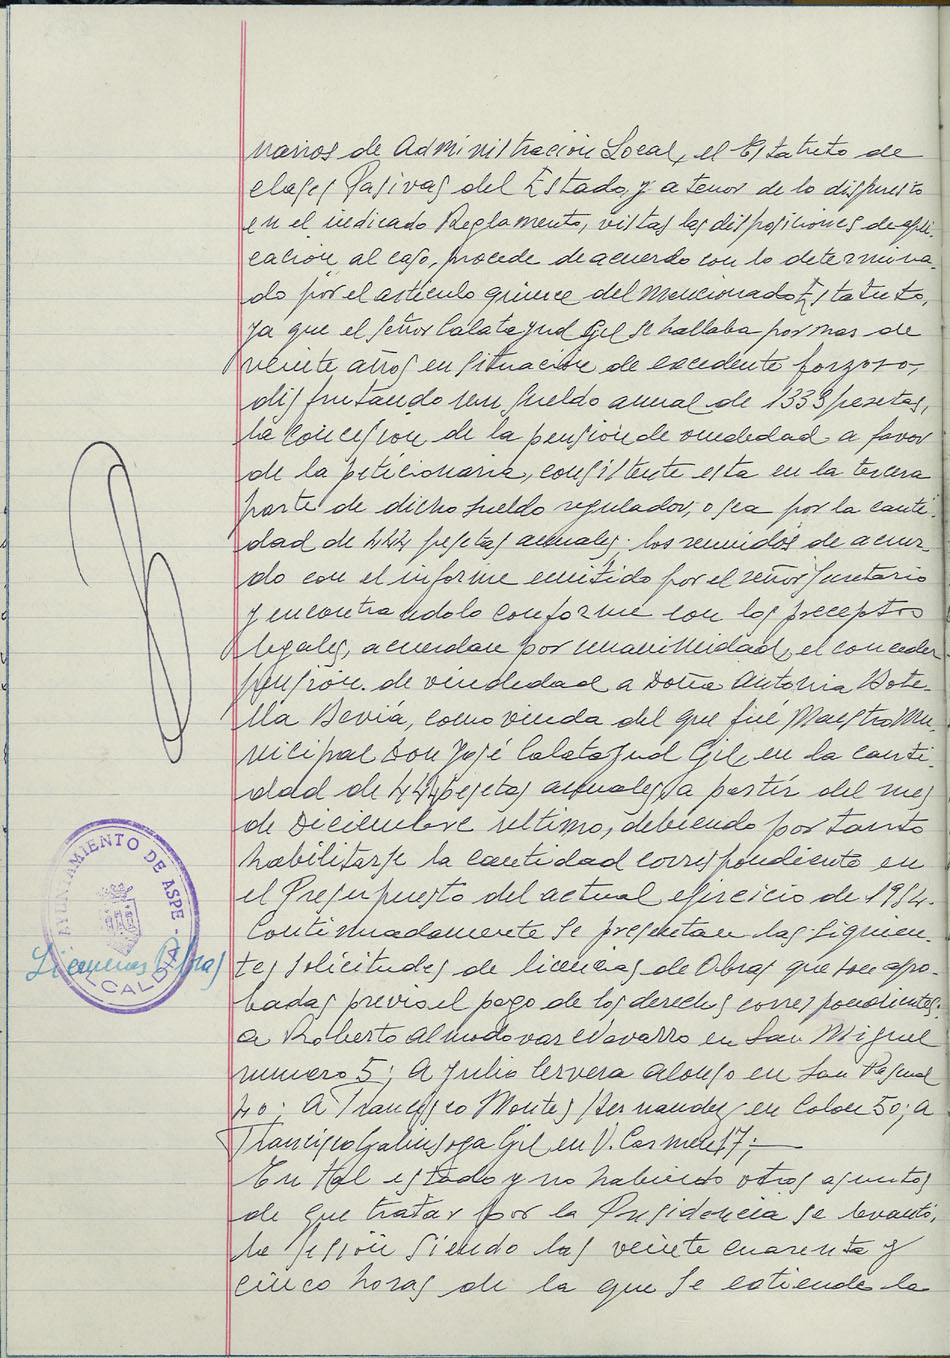 narios de Administración Local, el Estatuto de
clases Pasivas del Estado, y a tenor de lo dispuesto
en el indicado Reglamento, vistas las disposiciones de apli-
cación al caso, procede de acuerdo con lo determina-
do por el articulo quince del mencionado Estatuto,
ya que el señor Calatayud Gil se hallaba por mas de
veinte años en situación de excedente forzoso,
disfrutando un sueldo anual de 1333 pesetas,
la concesion de la pensión de viudedad a favor
de la peticionaria, consistente esta en la tercera
parte de dicho sueldo regulador, o sea por la canti-
dad de 444 pesetas anuales; los reunidos de acuer-
do con el informe emitido por el señor Secretario
y encontrandolo conforme con los preceptos
legales, acuerdan por unanimidad, el conceder
pensión de viudedad a Doña Antonia Bote-
lla Beviá, como viuda del que fué Maestro Mu-
nicipal Don José Calatayud Gil, en la canti-
dad de 444 pesetas anuales, a partir del mes
de Diciembre ultimo, debiendo por tanto
habilitarse la cantidad correspondiente en
el Presupuesto del actual ejercicio de 1954.
Licencias Obras
Continuadamente se presentan las siguien-
tes solicitudes de licencias de Obras que son apro-
badas previo el pago de los derechos correspondientes:
a Roberto Almodovar Navarro en San Miguel
numero 5; A Julio Cervera Alonso en San Pascual
40; A Francisco Montes Hernandez en Colon 50; A
Francisco Galinsoga Gil en V. Carmen 17;
En tal estado y no habiendo otros asuntos
de que tratar por la Presidencia se levantó,
la sesión siendo las veinte cuarenta y
cinco horas de la que se extiende la
AYUNTAMIENTO DE ASPE
ALCALDIA